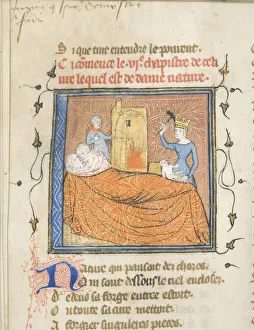 Si que tuit entendre le peurent
Ci comence le vi.e chapistre de ces
livre lequel est de dame nature.
Nature qui pansoit des choses
Qui sont dessous le ciel encloses
Dedens sa forge entree estoit
Ou toute sa cure metoit
A forgier singulieres pieces